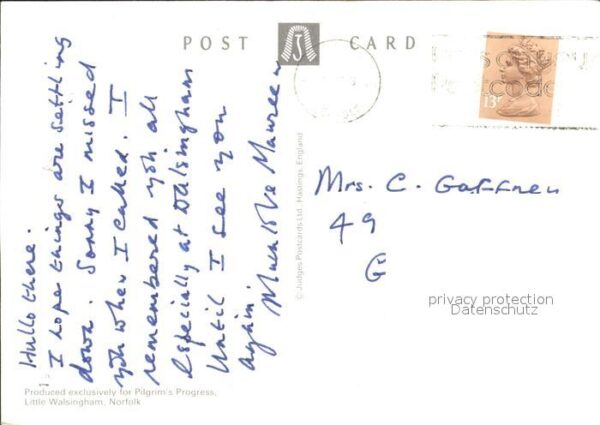 POST CARD
Hullo there.
I hope things are settling
down. Sorry I missed
you when I called. I
remembered you all
especially at Walsingham
Until I see you
again.
Much love Maureen
Mrs. C. Gaffney
49
G
13
© Judges Postcards Ltd., Hastings, England
Produced exclusively for Pilgrim's Progress,
Little Walsingham, Norfolk
privacy protection
Datenschutz